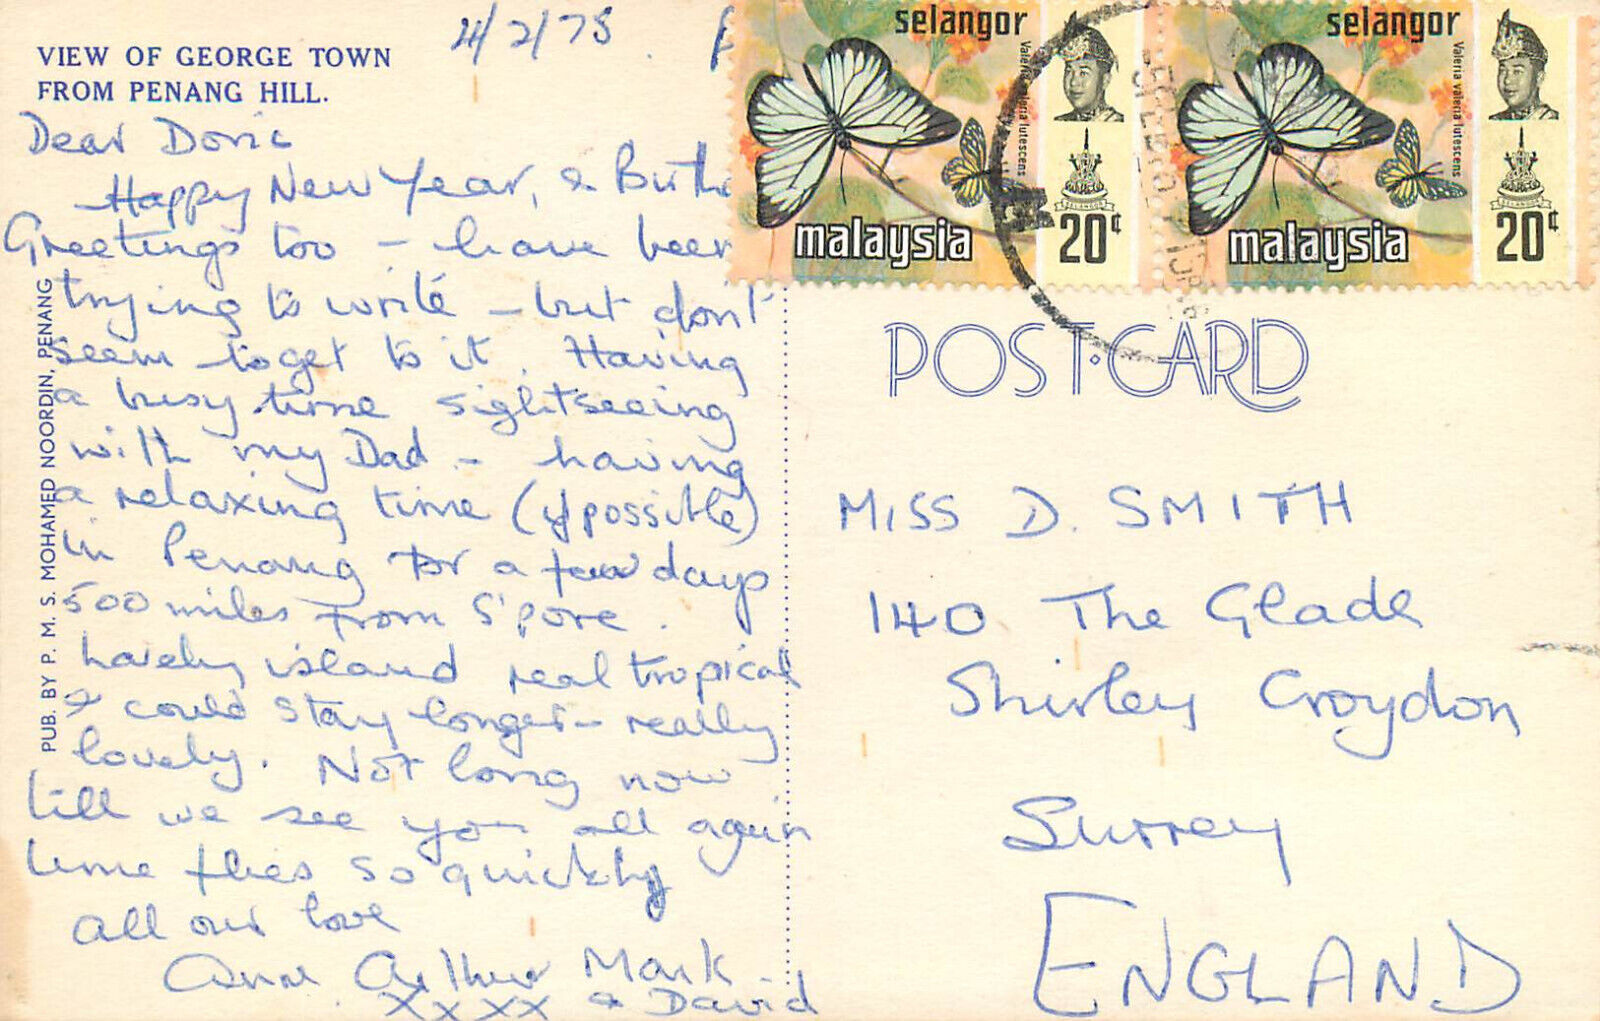 VIEW OF GEORGE TOWN
FROM PENANG HILL.
4/2/75
Dear Doris
Happy New Year, & Birth
Greetings too – have been
trying to write – but don't
seem to get to it. Having
a busy time sightseeing
with my Dad – having
a relaxing time (if possible)
in Penang for a few days
500 miles from S'pore.
Lovely island real tropical
I could stay longer – really
lovely. Not long now
till we see you all again
time flies so quickly
All our love
Anne Arthur Mark
& David
xxxx
PUB. BY P. M. S. MOHAMED NOORDIN, PENANG
selangor
Valeria valeria lutescens
malaysia
SELANGOR
20¢
selangor
Valeria valeria lutescens
malaysia
SELANGOR
20¢
POST·CARD
MISS D. SMITH
140 The Glade
Shirley Croydon
Surrey
ENGLAND